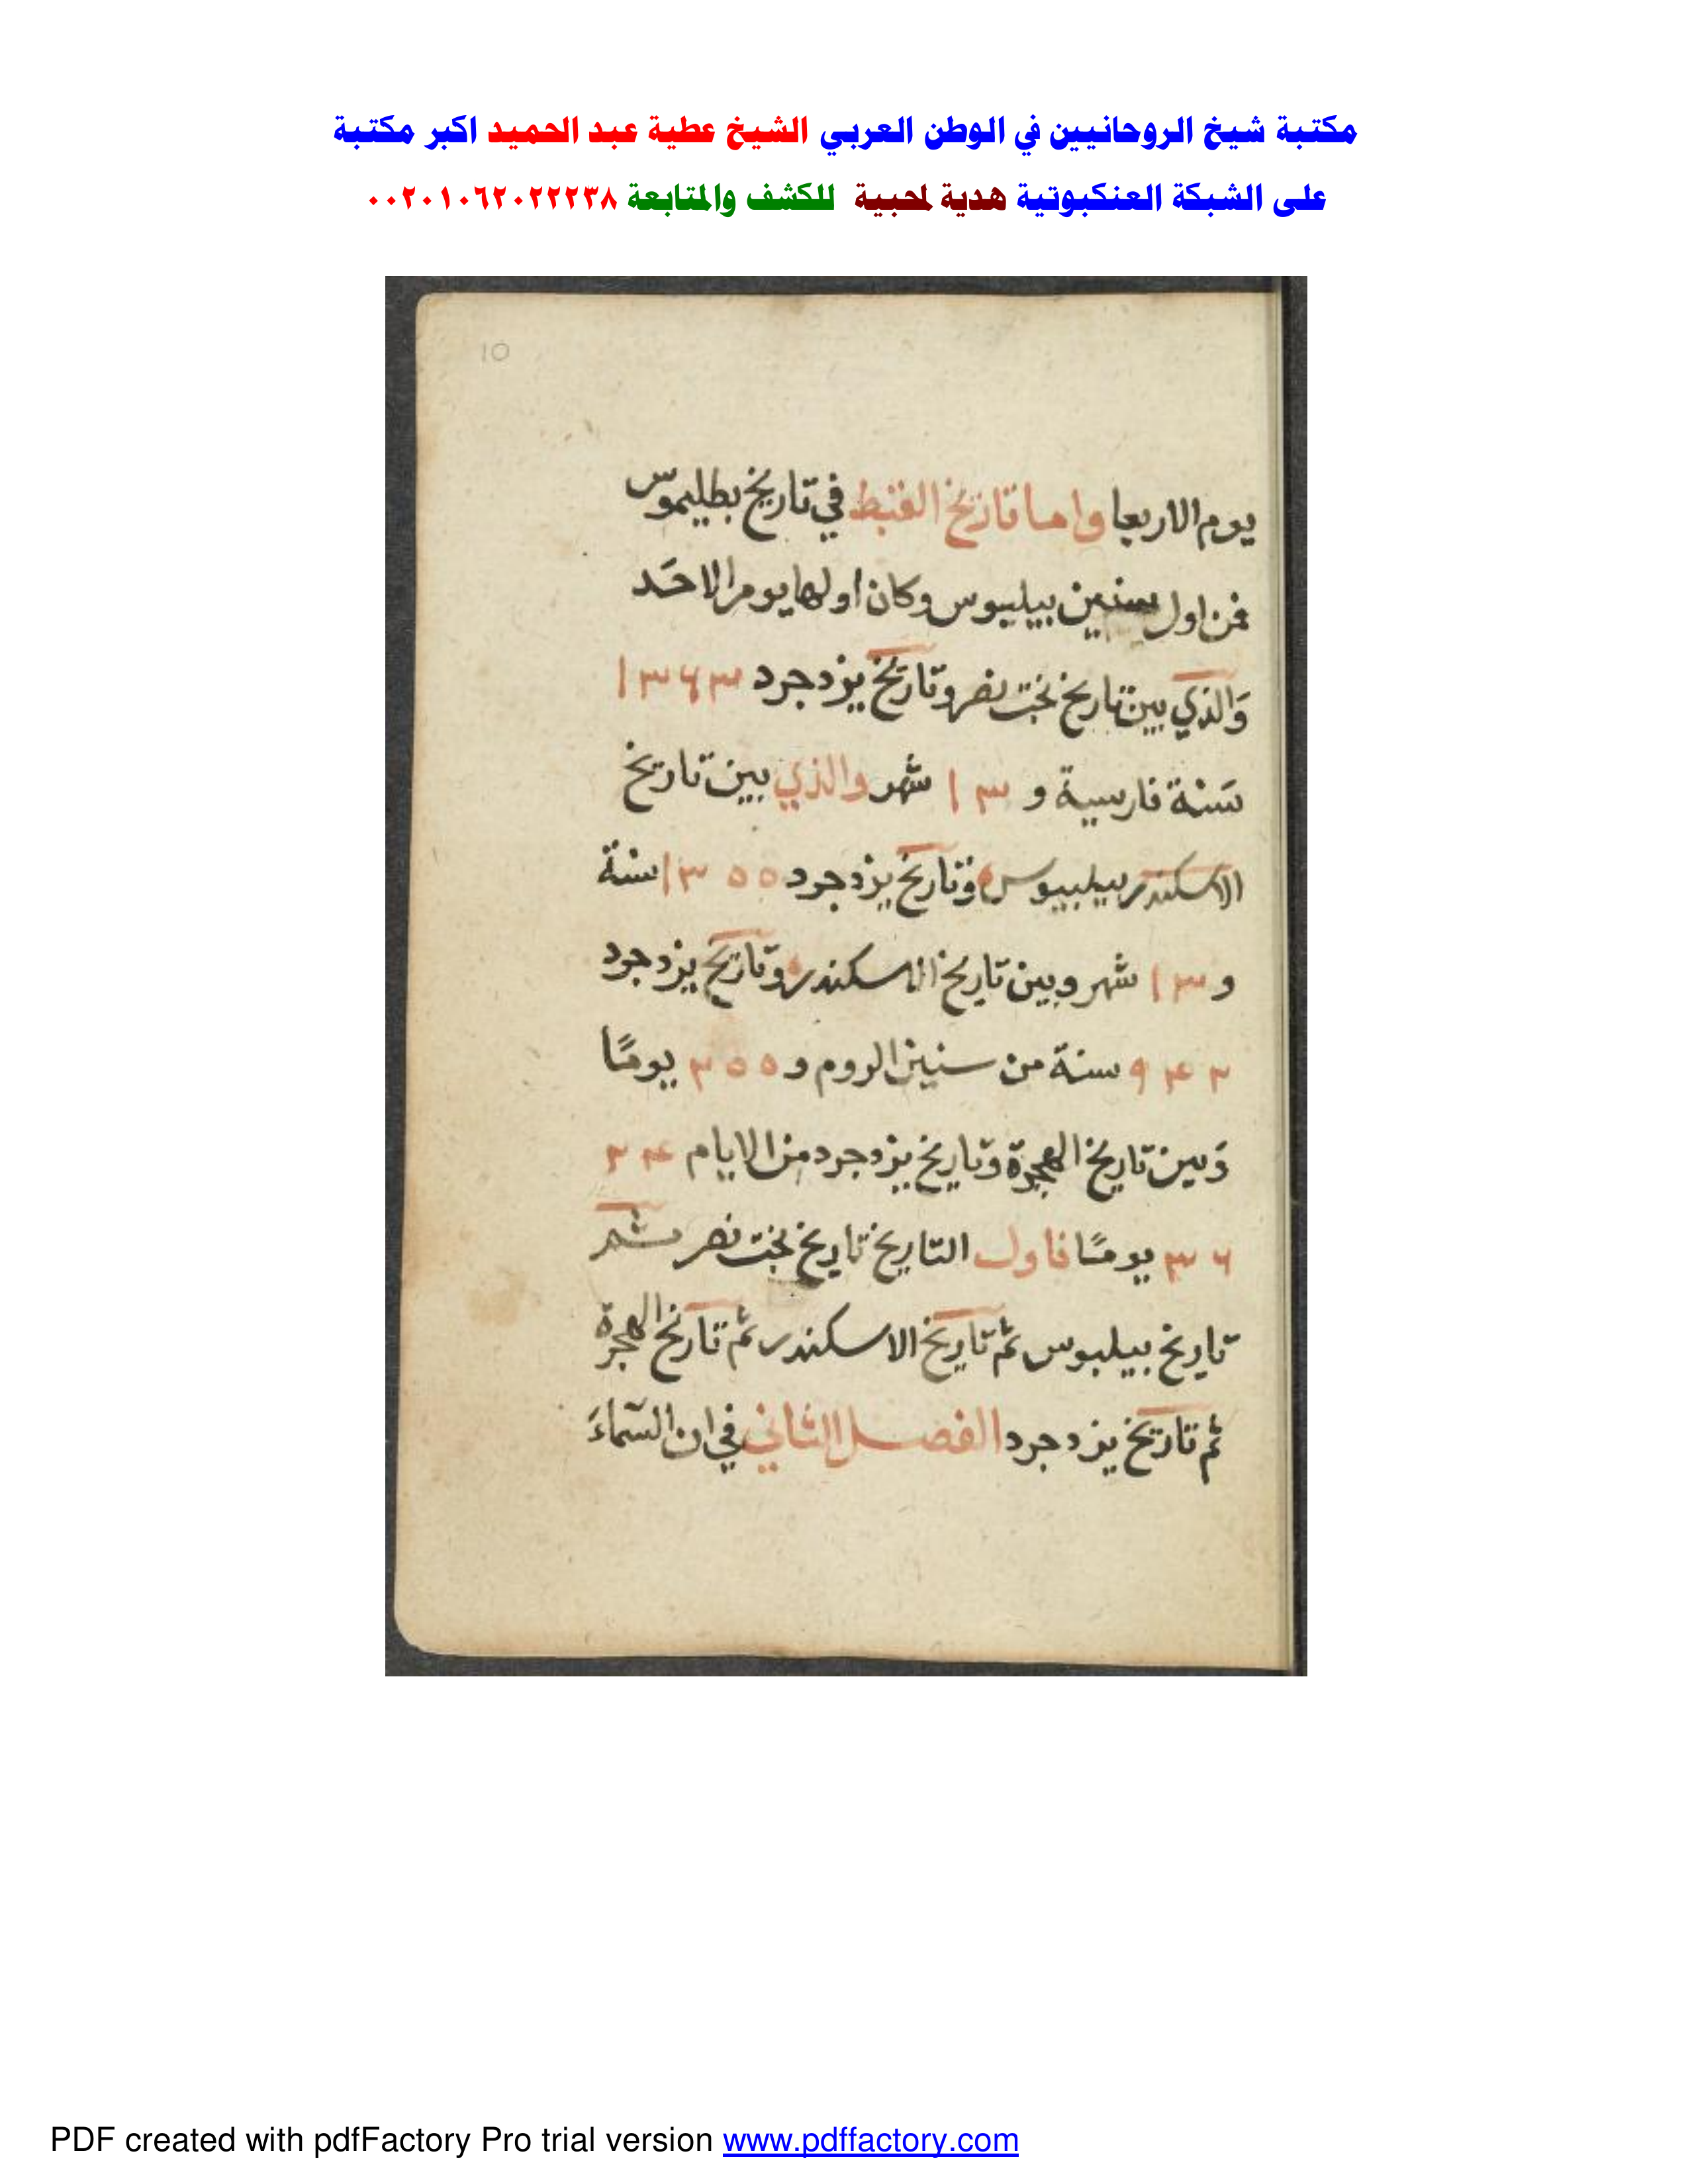 مكتبة شيخ الروحانيين في الوطن العربي الشيخ عطية عبد الحميد اكبر مكتبة
على الشبكة العنكبوتية هدية لمحبية للكشف والمتابعة ٠٠٢٠١٠٦٢٠٢٢٢٣٨
10
يوم الاربعا واما تاريخ القبط في تاريخ بطليموس
فمن اول سنين بيلبوس وكان اولها يوم الاحد
وَالذي بين تاريخ بخت نصر وتاريخ يزدجرد
سَنة فارسية و ٣ ١ شهر والذي بين تاريخ
الاسكندر بيلبيوس وتاريخ يزدجرد ١٣٥٥ سنة
و ٣ ١ شهر وبين تاريخ الاسكندر وتاريخ يزدجرد
سنة من سنين الروم و ٥٥ يومًا
وَبين تاريخ الهجرة وتاريخ يزدجرد من الايام
يومًا فاول التاريخ تاريخ بخت نصر ثم
تاريخ بيلبوس ثم تاريخ الاسكندر ثم تاريخ الهجرة
ثم تاريخ يزدجرد الفصل الثاني في ان السماءَ
PDF created with pdfFactory Pro trial version www.pdffactory.com